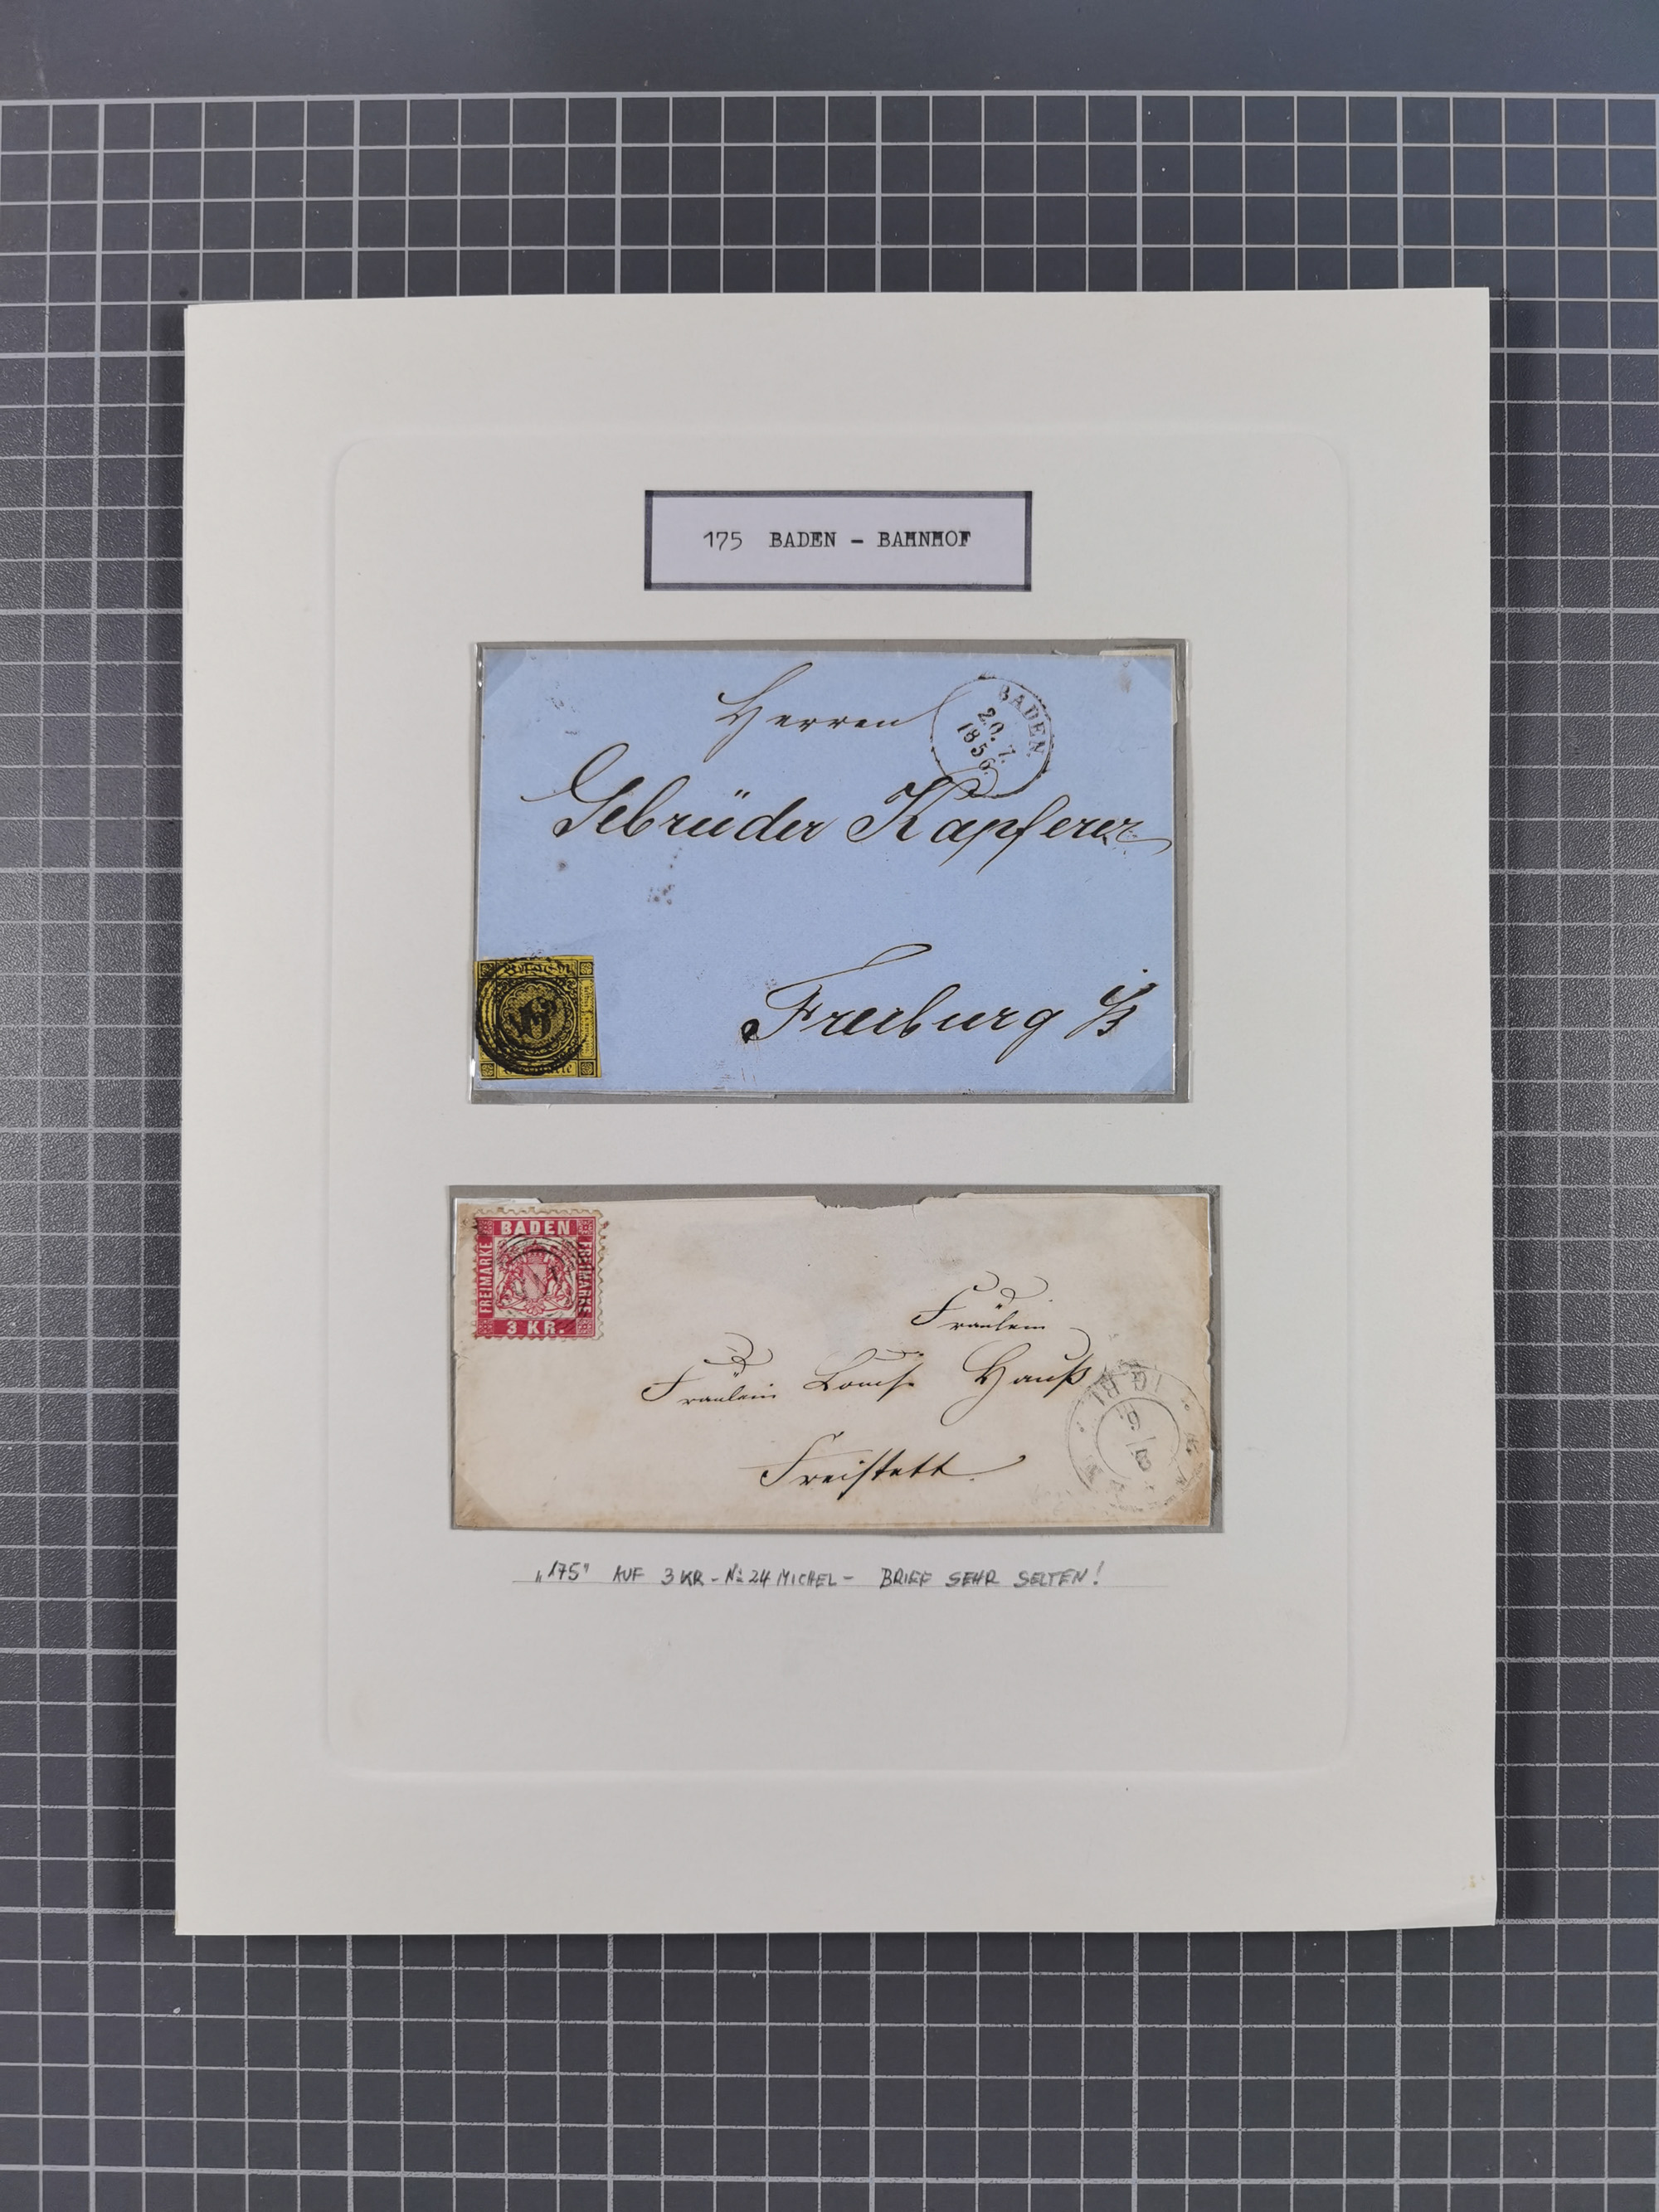 175 BADEN - BAHNHOF
Herren
BADEN
20. 7.
1856.
Gebrüder Kapferer
Freiburg i/B
BADEN
FREIMARKE
FREIMARKE
3 KR.
Fräulein
Fräulein Louise Hauß
Freistett.
„175" AUF 3 KR - No 24 MICHEL - BRIEF SEHR SELTEN!